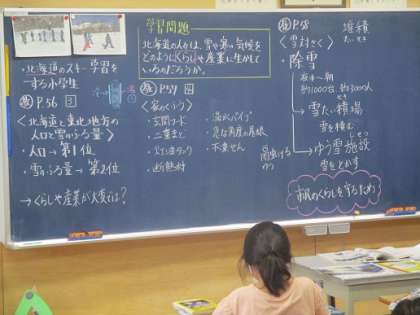 ・北海道のスキー学習を
する小学生
P.56
〈北海道と東北地方の
人口と雪のふる量〉
・人口→第1位
・雪のふる量→第2位
→くらしや産業が大変では？
学習問題
北海道の人々は、雪や寒い気候を
どのようにくらしや産業に生かして
いるのだろうか。
P.57
〈家のくふう〉
・玄関フード
・二重まど
・灯油タンク
・断熱材
・温水パイプ
・急な角度の屋根
・不凍せん
P.58
堆積
〈雪対さく〉
・除雪
夜中〜朝
約1000台 約3000人
→雪たい積場
雪を積む
→ゆう雪施設
雪をとかす
市民のくらしを守るため